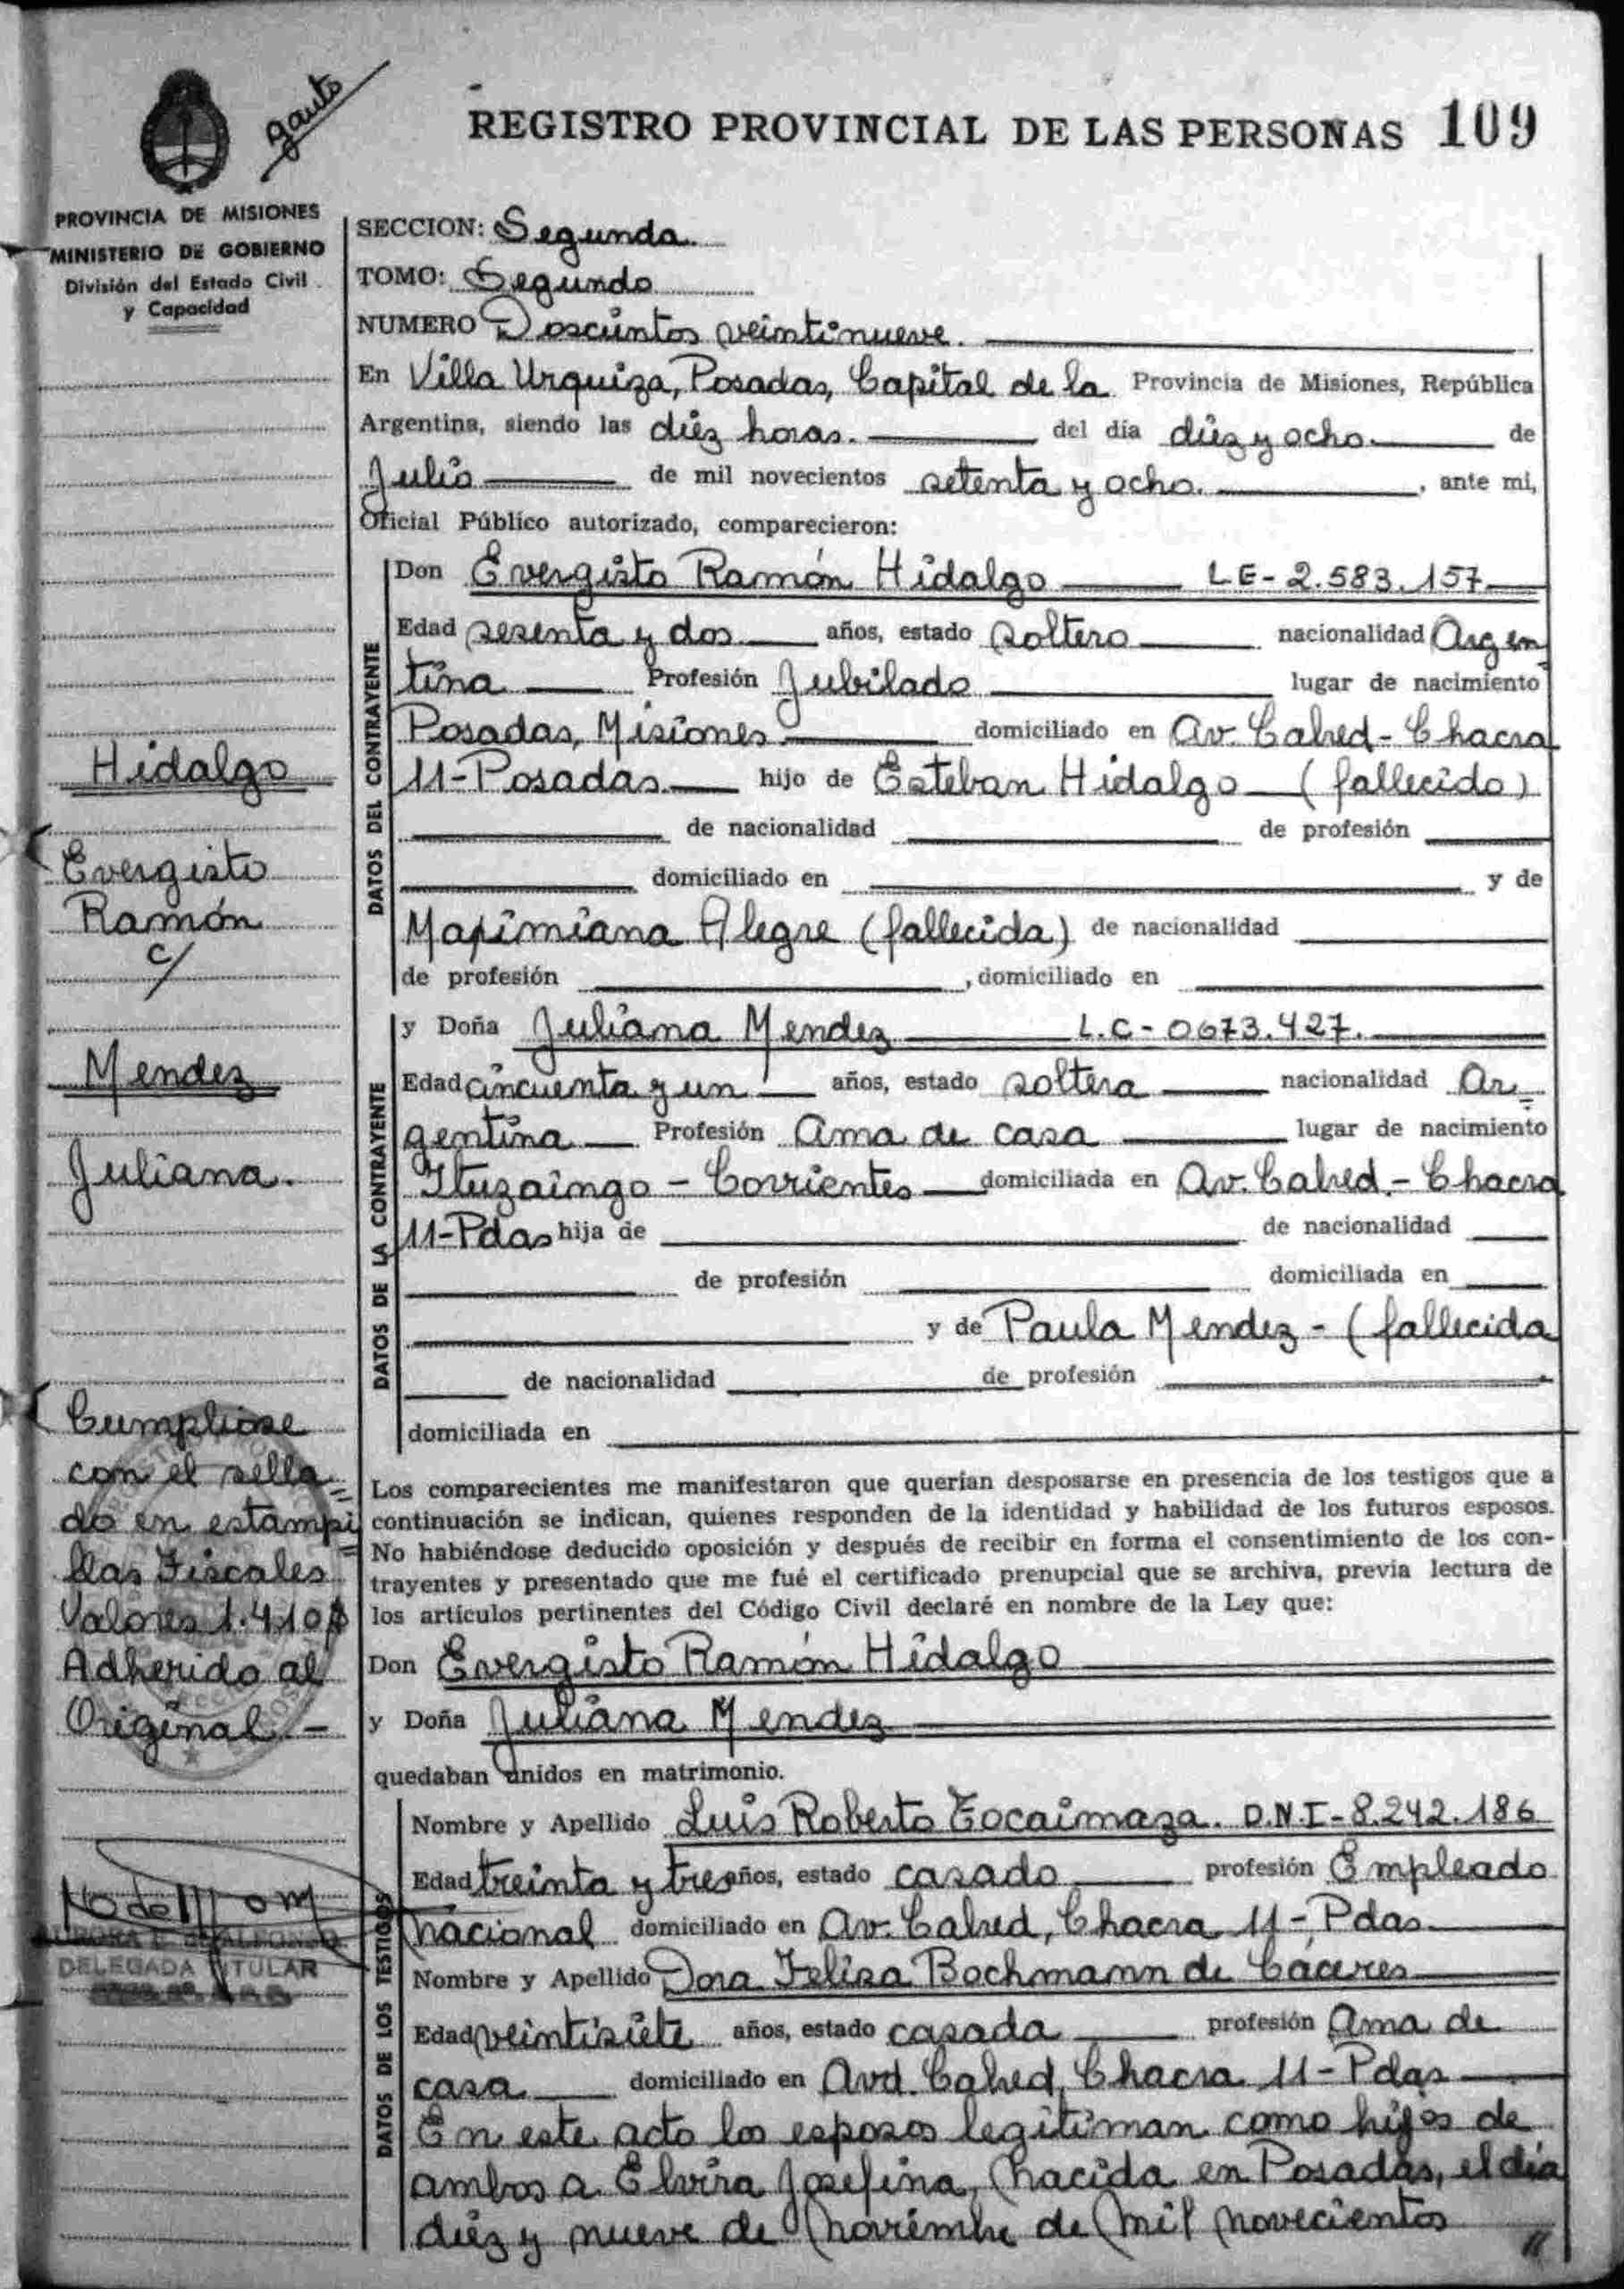 gauto
REGISTRO PROVINCIAL DE LAS PERSONAS 109
PROVINCIA DE MISIONES
MINISTERIO DE GOBIERNO
División del Estado Civil
y Capacidad
SECCION: Segunda.
TOMO: Segundo
NUMERO Doscientos veintinueve.
En Villa Urquiza, Posadas, Capital de la Provincia de Misiones, República
Argentina, siendo las diez horas. del día diez y ocho. de
Julio de mil novecientos setenta y ocho. , ante mi,
Oficial Público autorizado, comparecieron:
DATOS DEL CONTRAYENTE
Don Evergisto Ramón Hidalgo LE-2.583.157
Edad sesenta y dos años, estado soltero nacionalidad Argen
tina Profesión Jubilado lugar de nacimiento
Posadas, Misiones domiciliado en Av. Cabred - Chacra
11-Posadas. hijo de Esteban Hidalgo (fallecido)
de nacionalidad de profesión
domiciliado en y de
Maximiana Alegre (fallecida) de nacionalidad
de profesión , domiciliado en
DATOS DE LA CONTRAYENTE
y Doña Juliana Mendez L.C-0673.427.
Edad cincuenta y un años, estado soltera nacionalidad Ar=
gentina Profesión Ama de casa lugar de nacimiento
Ituzaingo - Corrientes domiciliada en Av. Cabred.- Chacra
11-Pdas hija de de nacionalidad
de profesión domiciliada en
y de Paula Mendez - (fallecida
de nacionalidad de profesión
domiciliada en
Los comparecientes me manifestaron que querían desposarse en presencia de los testigos que a
continuación se indican, quienes responden de la identidad y habilidad de los futuros esposos.
No habiéndose deducido oposición y después de recibir en forma el consentimiento de los con-
trayentes y presentado que me fué el certificado prenupcial que se archiva, previa lectura de
los artículos pertinentes del Código Civil declaré en nombre de la Ley que:
Don Evergisto Ramón Hidalgo
y Doña Juliana Mendez
quedaban unidos en matrimonio.
DATOS DE LOS TESTIGOS
Nombre y Apellido Luis Roberto Tocaimaza. D.N.I-8.242.186
Edad treinta y tres años, estado casado profesión Empleado
nacional domiciliado en Av. Cabred, Chacra 11-Pdas.
Nombre y Apellido Dora Felisa Bochmann de Cáceres
Edad veintisiete años, estado casada profesión Ama de
casa domiciliado en Avd. Cabred, Chacra 11-Pdas
En este acto los esposos legitiman como hijos de
ambos a Elvira Josefina, nacida en Posadas, el día
diez y nueve de noviembre de mil novecientos //
Hidalgo
Evergisto
Ramón
c/
Mendez
Juliana.
Cumpliose
con el sella=
do en estampi=
llas Fiscales
Valores 1.410$
Adherido al
Original.-
DELEGADA TITULAR